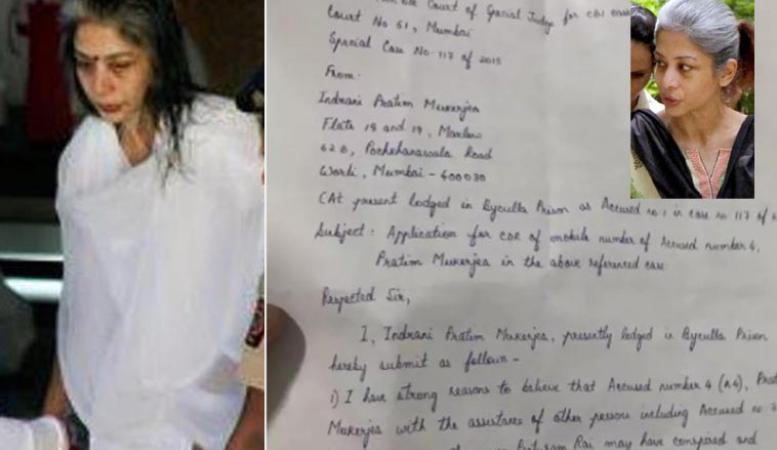 the Court of Special Judge for CBI cases
Court No 51, Mumbai
Special Case No. 117 of 2015
From-
Indrani Pratim Mukerjea
Flats 18 and 19, Marlow
62 B, Pochkhanawala Road
Worli, Mumbai - 400030
(At present lodged in Byculla Prison as Accused no 1 in case no 117 of
Subject: Application for CDR of mobile number of Accused number 4,
Pratim Mukerjea in the above referenced case
Respected Sir,
I, Indrani Pratim Mukerjea, presently lodged in Byculla Prison
hereby submit as follows -
1) I have strong reasons to believe that Accused number 4 (A4),
Mukerjea with the assistance of other persons including Accused no
Rai may have conspired and